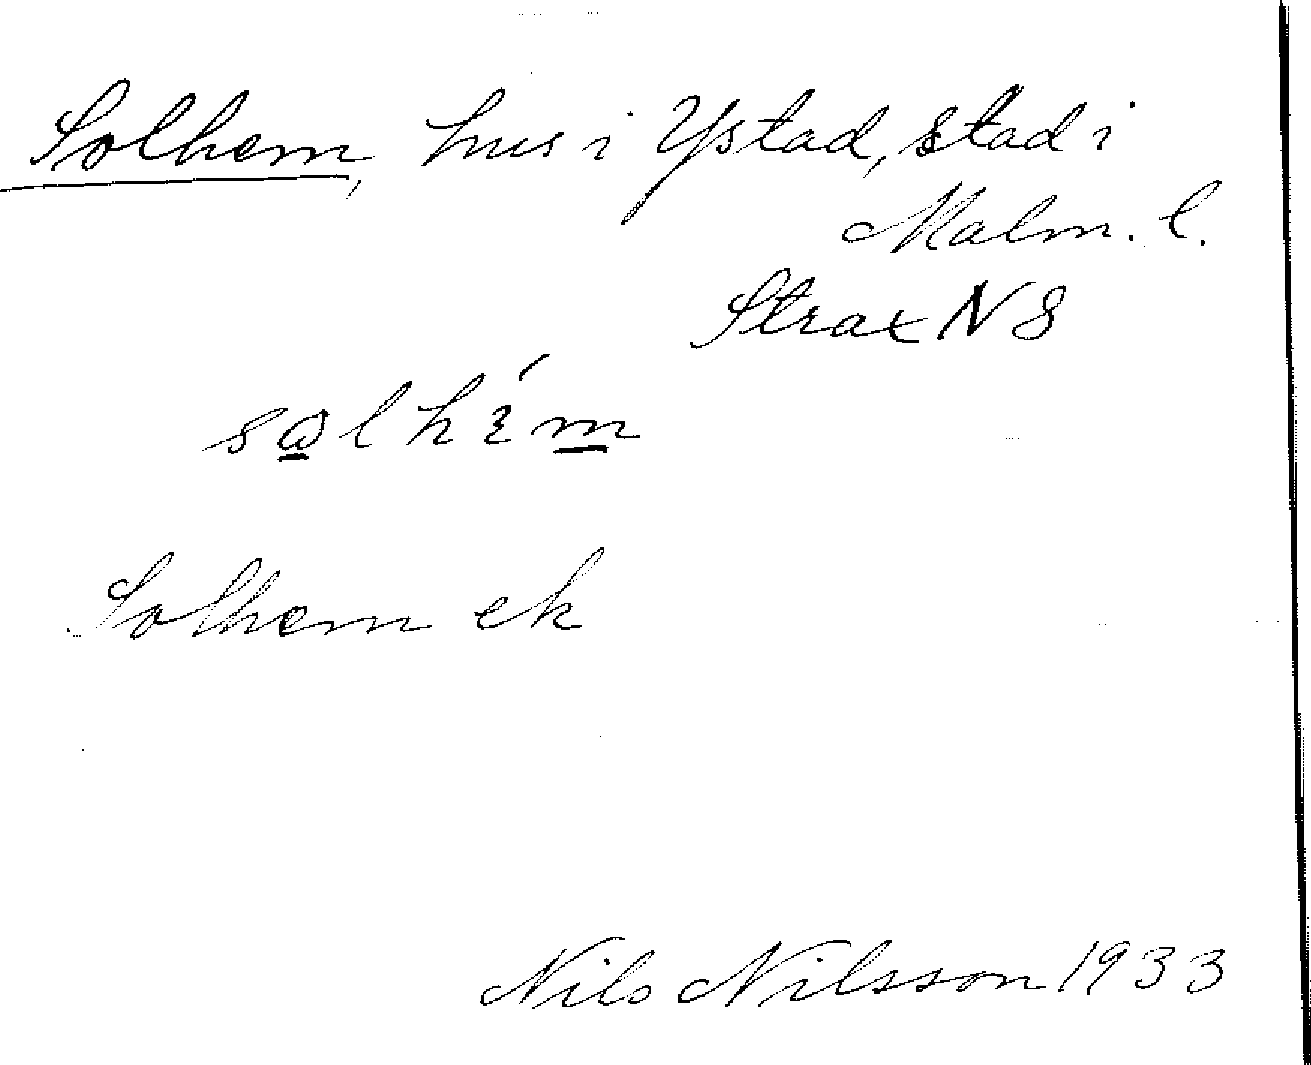 Solhem, hus i Ystad, stad i
Malm. l.
Strax N 8
Solhem ek
Nils Nilsson 1933